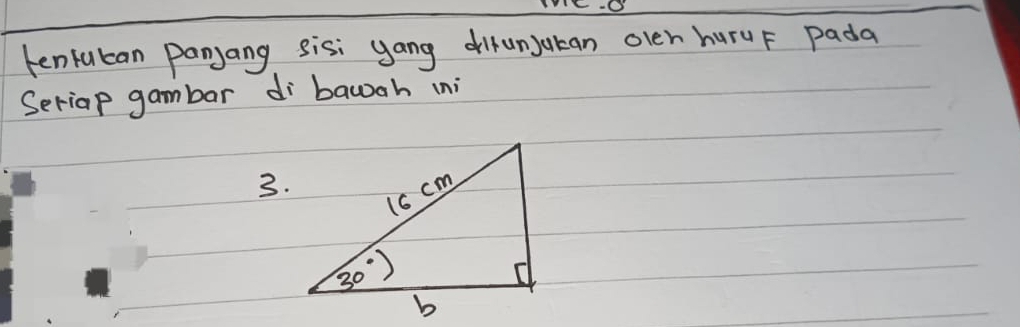 tentukan panjang sisi yang ditunjukan oleh huruf pada
Setiap gambar di bawah ini
3.
16 cm
30°
b